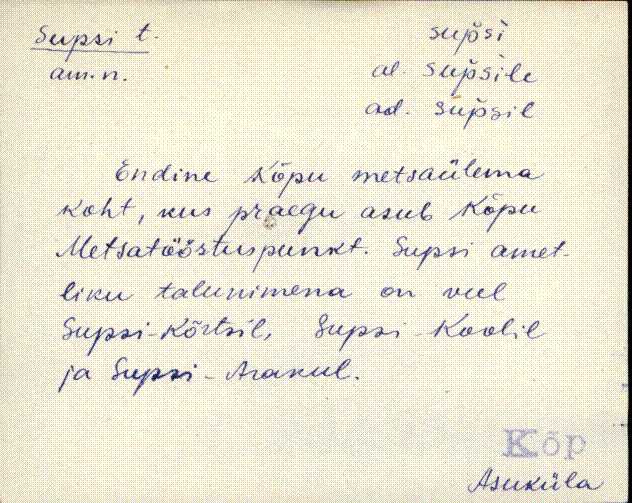 Supsi t. sup̀si
am. n. al. sup̀sile
ad. sup̀sil
Endine Kõpu metsaülema
koht, kus praegu asub Kõpu
Metsatööstuspunkt. Supsi amet-
liku talunimena on veel
Supsi-Kõrtsil, Supsi-Koolil
ja Supsi-Arakul.
Kõp
Asuküla